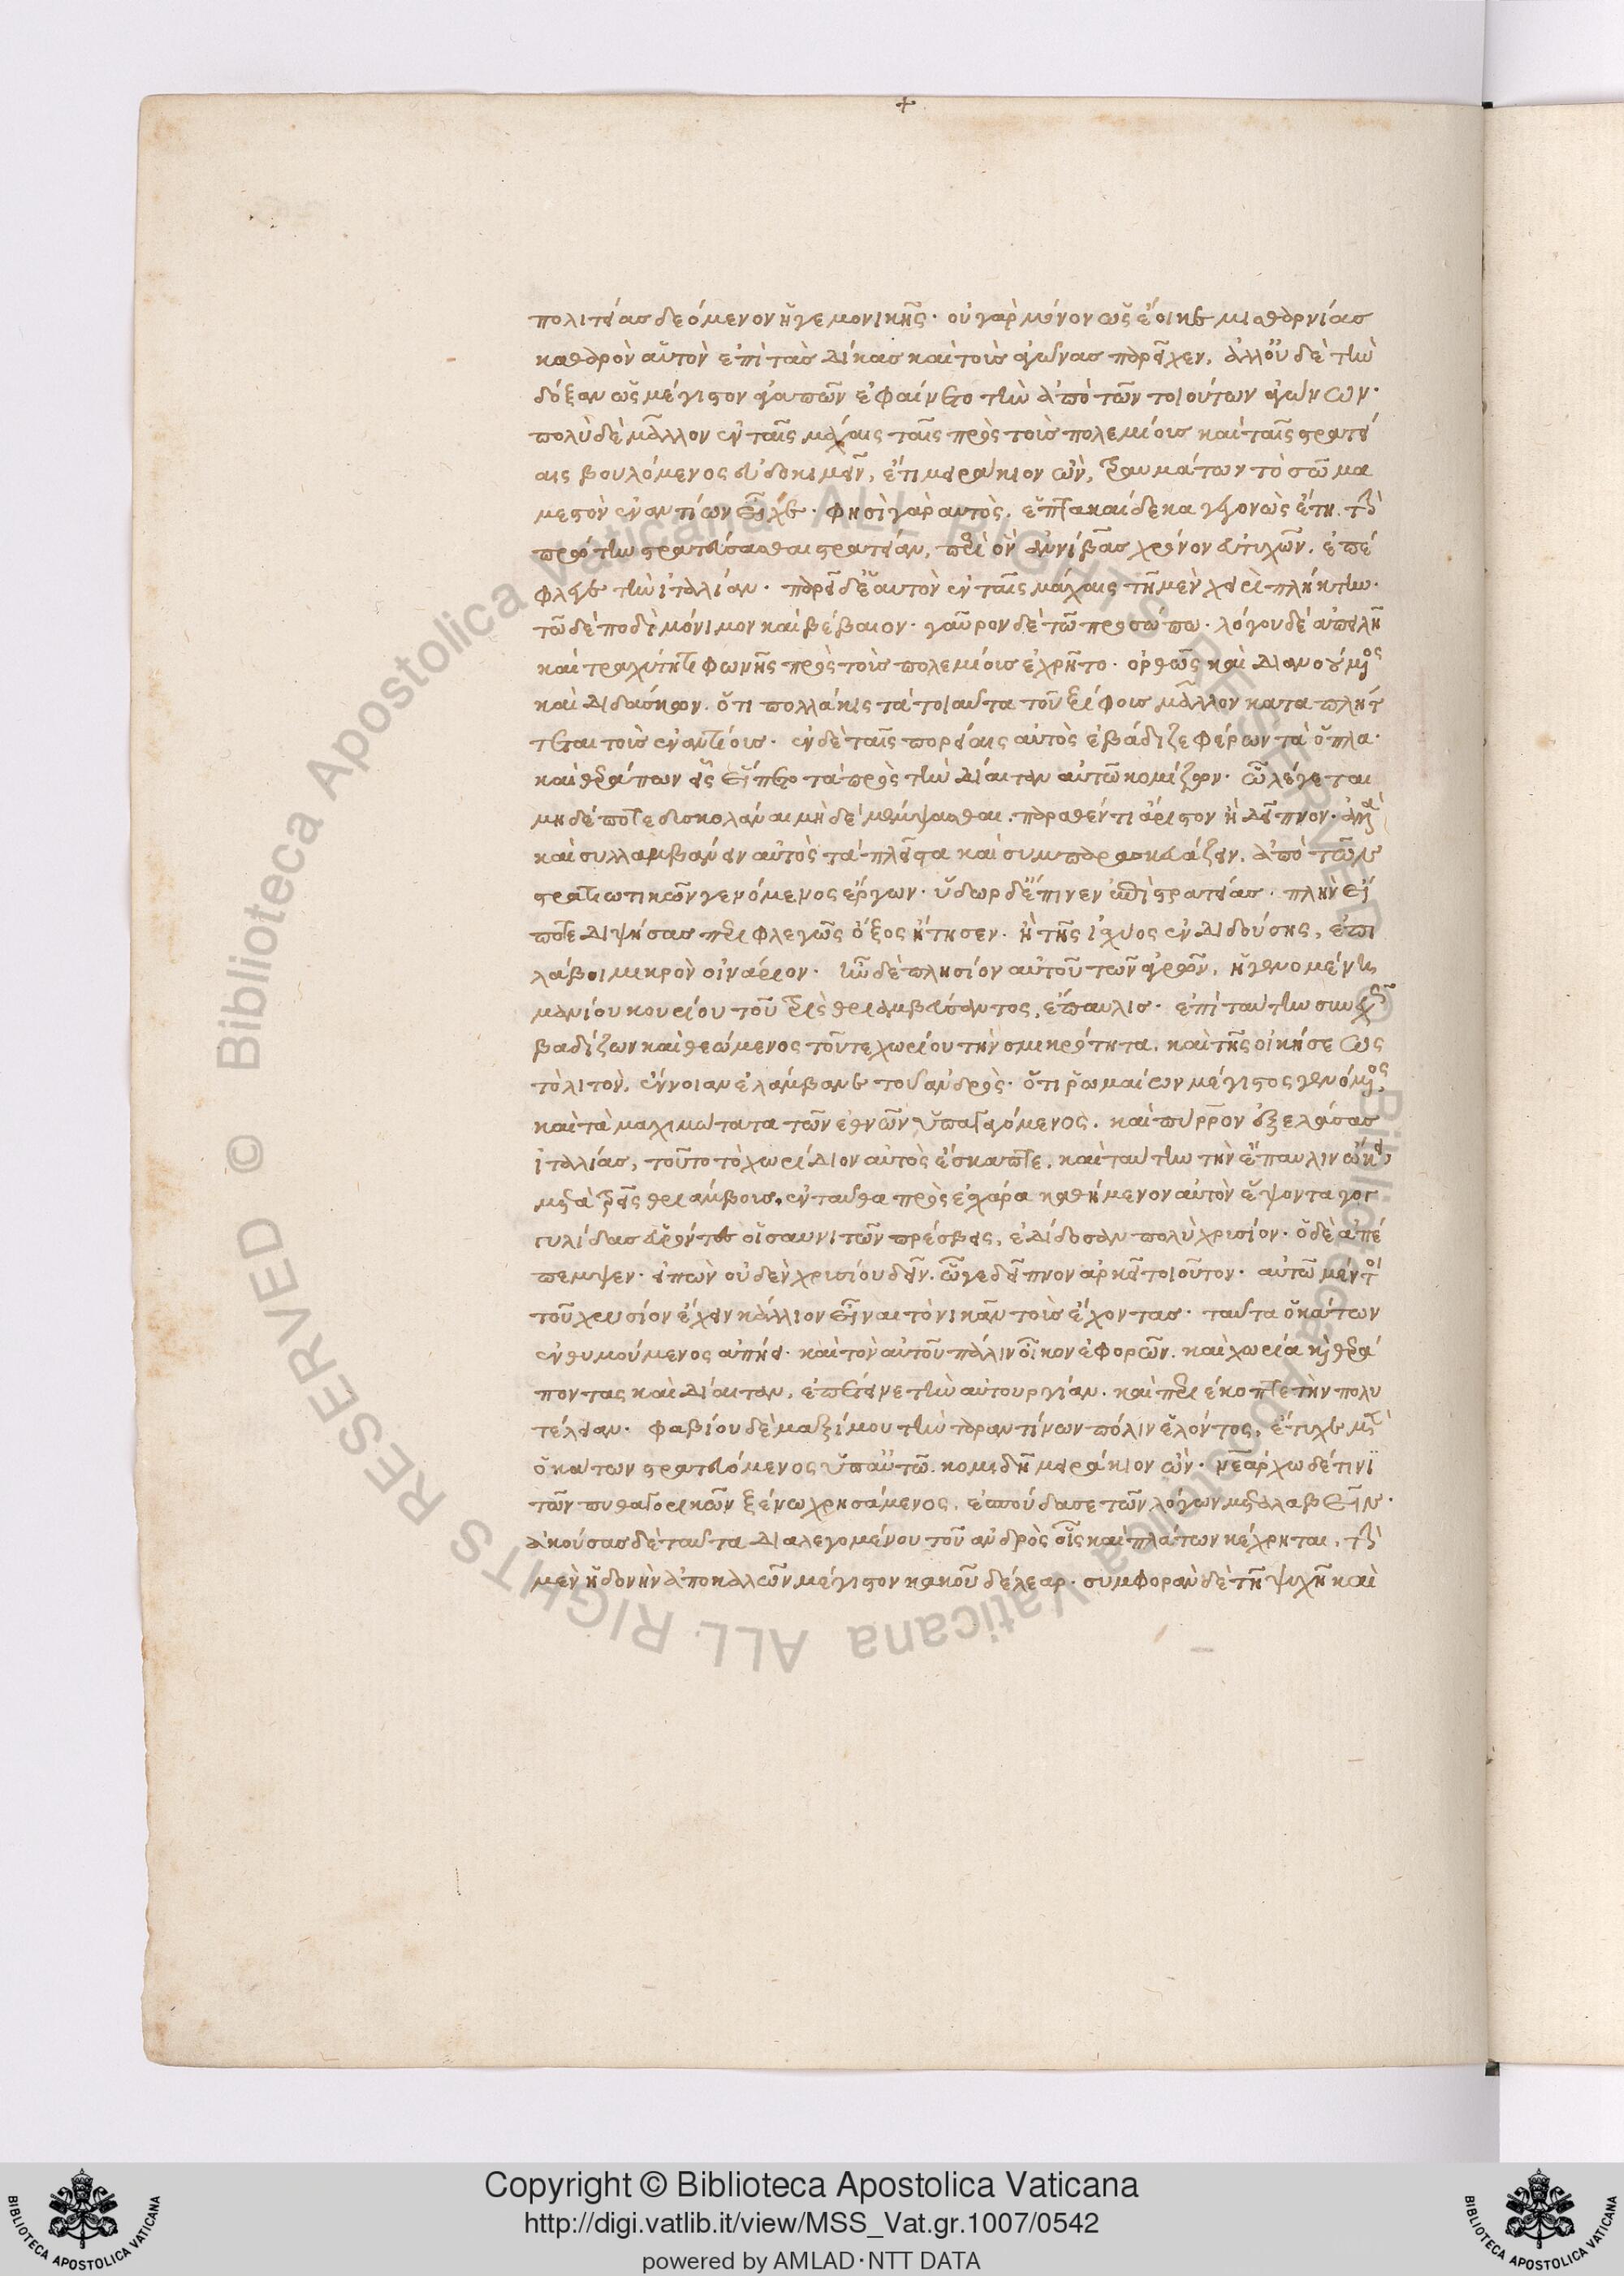 πολιτείας δεόμενον ἡγεμονικῆς· οὐ γὰρ μόνον ὡς ἔοικε μισθαρνίας
καθαρὸν αὑτὸν ἐπὶ τὰς δίκας καὶ τοὺς ἀγῶνας παρεῖχεν, ἀλλ' οὐδὲ τὴν
δόξαν ὡς μέγιστον ἀγαπῶν ἐφαίνετο τὴν ἀπὸ τῶν τοιούτων ἀγώνων·
πολὺ δὲ μᾶλλον ἐν ταῖς μάχαις ταῖς πρὸς τοὺς πολεμίους καὶ ταῖς στρατεί
αις βουλόμενος εὐδοκιμεῖν, ἔτι μειράκιον ὢν, τραυμάτων τὸ σῶμα
μεστὸν ἐναντίων εἶχε· φησὶ γὰρ αυτὸς, ἑπτακαίδεκα γεγονὼς ἔτη, τὴν
πρώτην στρατεύσασθαι στρατείαν, περὶ ὃν ἀννίβας χρόνον εὐτυχῶν, ἐπέ
φλεγε τὴν ἰταλίαν· παρεῖ δὲ αὑτὸν ἐν ταῖς μάχαις τῆ μὲν χειρὶ πλήκτην·
τῶ δὲ ποδὶ μόνιμον καὶ βέβαιον· γαῦρον δὲ τῶ προσώπω· λόγου δὲ ἀπειλῆ
καὶ τραχύτητι φωνῆς πρὸς τοὺς πολεμίους ἐχρῆτο· ὀρθῶς καὶ διανοούμενος
καὶ διδάσκων. ὅτι πολλάκις τὰ τοιαῦτα τοῦ ξίφους μᾶλλον καταπλήτ
τεται τοὺς ἐναντίους· ἐν δὲ ταῖς πορείαις αὐτὸς ἐβάδιζε φέρων τὰ ὅπλα·
καὶ θεράπων εἷς εἵπετο τὰ πρὸς τὴν δίαιταν αὐτῶ κομίζων. ὧ λέγεται
μηδέποτε δυσκολᾶναι μηδὲ μέμψασθαι, παραθέντι ἄριστον ἢ δεῖπνον· ἀλλὰ
καὶ συλλαμβάνειν αὐτὸς τὰ πλεῖστα καὶ συμπαρασκευάζειν, ἀπὸ τῶν
στρατιωτικῶν γενόμενος ἔργων· ὕδωρ δ' ἔπινεν ἐπὶ στρατείας· πλὴν εἴ
ποτε διψήσας περιφλεγῶς ὄξος ἤτησεν· ἢ τῆς ἰσχύος ἐνδιδούσης, ἐπι
λάβοι μικρὸν οἰνάριον· ἦν δὲ πλησίον αὐτοῦ τῶν ἀγρῶν, ἡ γενομένη
μανίου κουρίου τοῦ τρὶς θριαμβεύσαντος, ἔπαυλις· ἐπὶ ταύτην συνεχῶς
βαδίζων καὶ θεώμενος τοῦ τε χωρίου τὴν σμικρότητα, καὶ τῆς οἰκήσεως
τὸ λιτὸν, ἔννοιαν ἐλάμβανε τοῦ ἀνδρὸς· ὅτι ῥωμαίων μέγιστος γενόμενος,
καὶ τὰ μαχιμώτατα τῶν ἐθνῶν ὑπαγαγόμενος, καὶ πύρρον ἐξελάσας
ἰταλίας, τοῦτο τὸ χωρίδιον αὐτὸς ἔσκαπτε, καὶ ταύτην τὴν ἔπαυλιν ὤκει
μετὰ τρεῖς θριάμβους. ἐνταῦθα πρὸς ἐσχάρα καθήμενον αὐτὸν ἕψοντα γογ
γυλίδας εὑρόντες οἱ σαυνιτῶν πρέσβεις, ἐδίδοσαν πολὺ χρυσίον· ὁ δὲ ἀπέ
πεμψεν· εἰπὼν οὐδὲν χρυσίου δεῖν, ὧ γε δεῖπνον ἀρκεῖ τοιοῦτον· αὐτῶ μέντοι
τοῦ χρυσίον ἔχειν κάλλιον εἶναι τὸ νικᾶν τοὺς ἔχοντας· ταῦτα ὁ κάτων
ἐνθυμούμενος ἀπήει· καὶ τὸν αὐτοῦ πάλιν οἶκον ἐφορῶν, καὶ χωρία καὶ θερά
ποντας καὶ δίαιταν, ἐπέτεινε τὴν αὐτουργίαν, καὶ περιέκοπτε τὴν πολυ
τέλειαν· φαβίου δὲ μαξίμου τὴν ταραντίνων πόλιν ἑλόντος, ἔτυχε μὲν
ὁ κάτων στρατευόμενος ὑπ' αὐτῶ, κομιδῆ μειράκιον ὢν· νεάρχω δέ τινι
τῶν πυθαγορικῶν ξένω χρησάμενος, ἐσπούδασε τῶν λόγων μεταλαβεῖν·
ἀκούσας δὲ ταῦτα διαλεγομένου τοῦ ἀνδρὸς οἷς καὶ πλάτων κέχρηται, τὴν
μὲν ἡδονὴν ἀποκαλῶν μέγιστον κακοῦ δέλεαρ· συμφορὰν δὲ τῆ ψυχῆ καὶ
Copyright © Biblioteca Apostolica Vaticana
http://digi.vatlib.it/view/MSS_Vat.gr.1007/0542
powered by AMLAD·NTT DATA
BIBLIOTECA APOSTOLICA VATICANA
BIBLIOTECA APOSTOLICA VATICANA
© Biblioteca Apostolica Vaticana ALL RIGHTS RESERVED
© Biblioteca Apostolica Vaticana ALL RIGHTS RESERVED